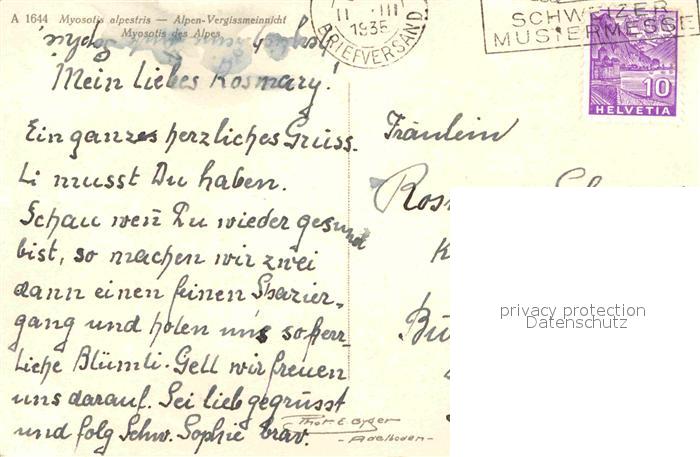 A 1644 Myosotis alpestris — Alpen-Vergissmeinnicht
Myosotis des Alpes
Mein liebes Rosmary!
Ein ganzes herzliches Grüss-
li musst Du haben.
Schau wen̄ Du wieder gesund
bist, so machen wir zwei
dann einen feinen Spazier-
gang und holen uns so herr-
liche Blümli. Gell wir freuen
uns darauf. Sei lieb gegrüsst
und folg Schw. Sophie brav.
II III
1935
BRIEFVERSAND
SCHWEIZER
MUSTERMESSE
10
HELVETIA
Fräulein
privacy protection
Datenschutz
Phot. E. Gyger
- Adelboden -